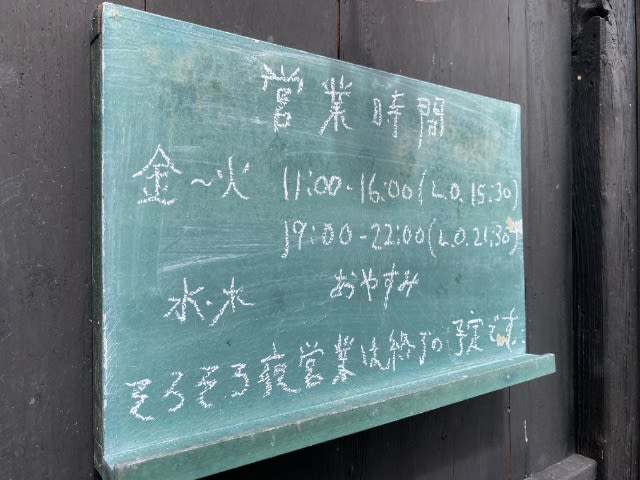 営業時間
金〜火 11:00-16:00(L.O.15:30)
19:00-22:00(L.O.21:30)
水・木 おやすみ
そろそろ夜営業は終了の予定です